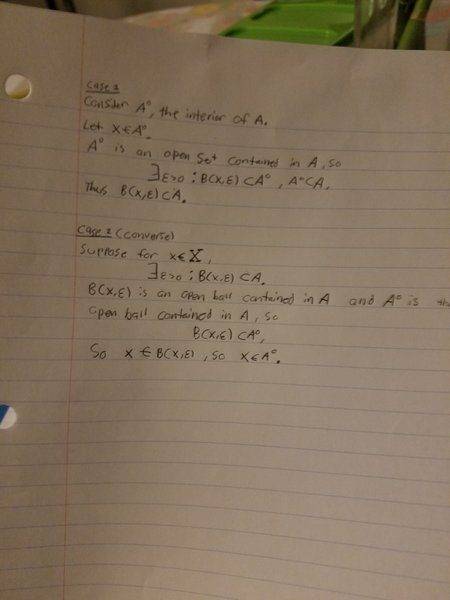 Case 1
Consider A°, the interior of A.
Let x∈A°.
A° is an open set contained in A, so
∃ε>0 : B(x,ε) ⊂A° , A°⊂A.
Thus B(x,ε)⊂A.
Case 2 (converse)
Suppose for x∈X,
∃ε>0 : B(x,ε) ⊂A.
B(x,ε) is an open ball contained in A and A° is
open ball contained in A, so
B(x,ε) ⊂A°,
So x ∈ B(x,ε), so x∈A°.